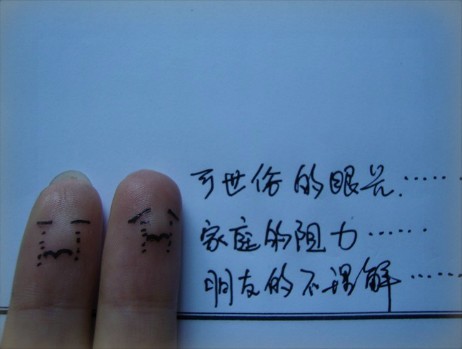 可世俗的眼光……
家庭的阻力……
朋友的不理解……